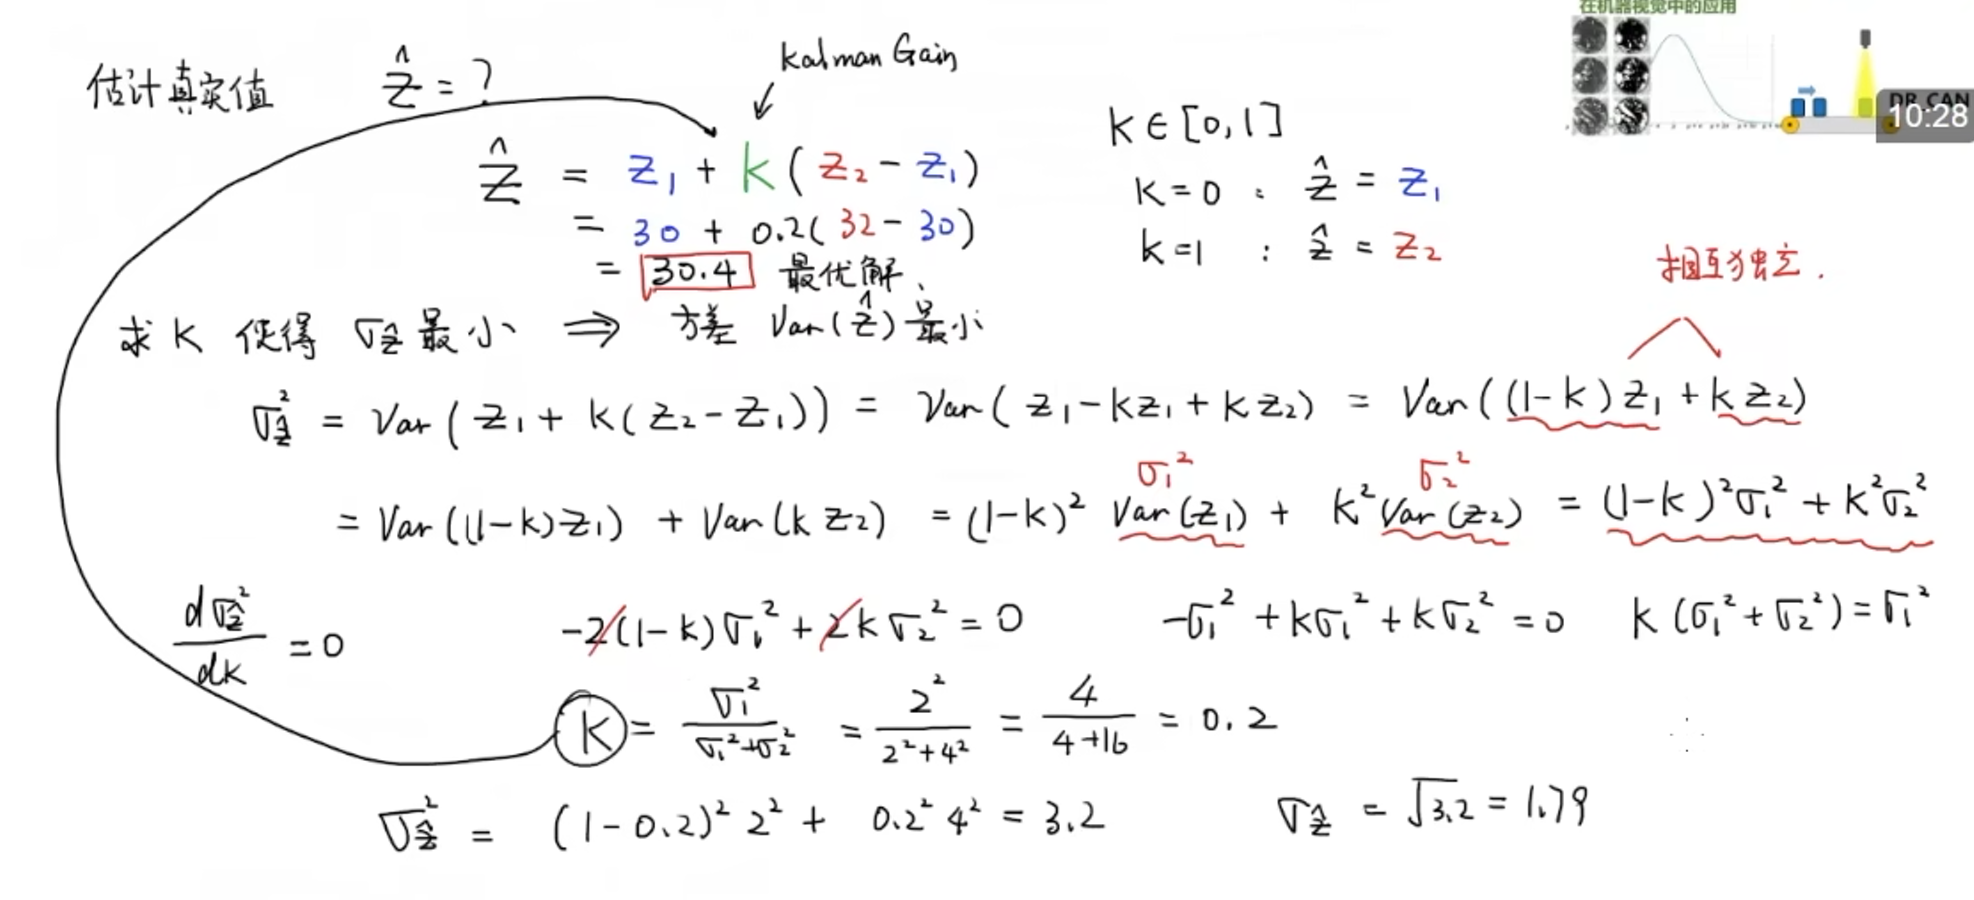 在机器视觉中的应用
DR_CAN
10:28
估计真实值 ẑ = ?
Kalman Gain
ẑ = z₁ + k ( z₂ - z₁ )
= 30 + 0.2( 32 - 30 )
= 30.4 最优解、
k ∈ [0, 1]
k = 0 : ẑ = z₁
k = 1 : ẑ = z₂
相互独立.
求 k 使得 σ_ẑ 最小 ⇒ 方差 Var(ẑ) 最小
σ_ẑ² = Var( z₁ + k( z₂ - z₁ )) = Var( z₁ - kz₁ + kz₂ ) = Var( (1-k) z₁ + k z₂ )
σ₁² σ₂²
= Var((1-k)z₁) + Var(k z₂) = (1-k)² Var(z₁) + k² Var(z₂) = (1-k)²σ₁² + k²σ₂²
dσ_ẑ²/dk = 0 -2(1-k)σ₁² + 2kσ₂² = 0 -σ₁² + kσ₁² + kσ₂² = 0 k(σ₁² + σ₂²) = σ₁²
k = σ₁²/(σ₁²+σ₂²) = 2²/(2²+4²) = 4/(4+16) = 0.2
σ_ẑ² = (1-0.2)² 2² + 0.2² 4² = 3.2 σ_ẑ = √3.2 = 1.79